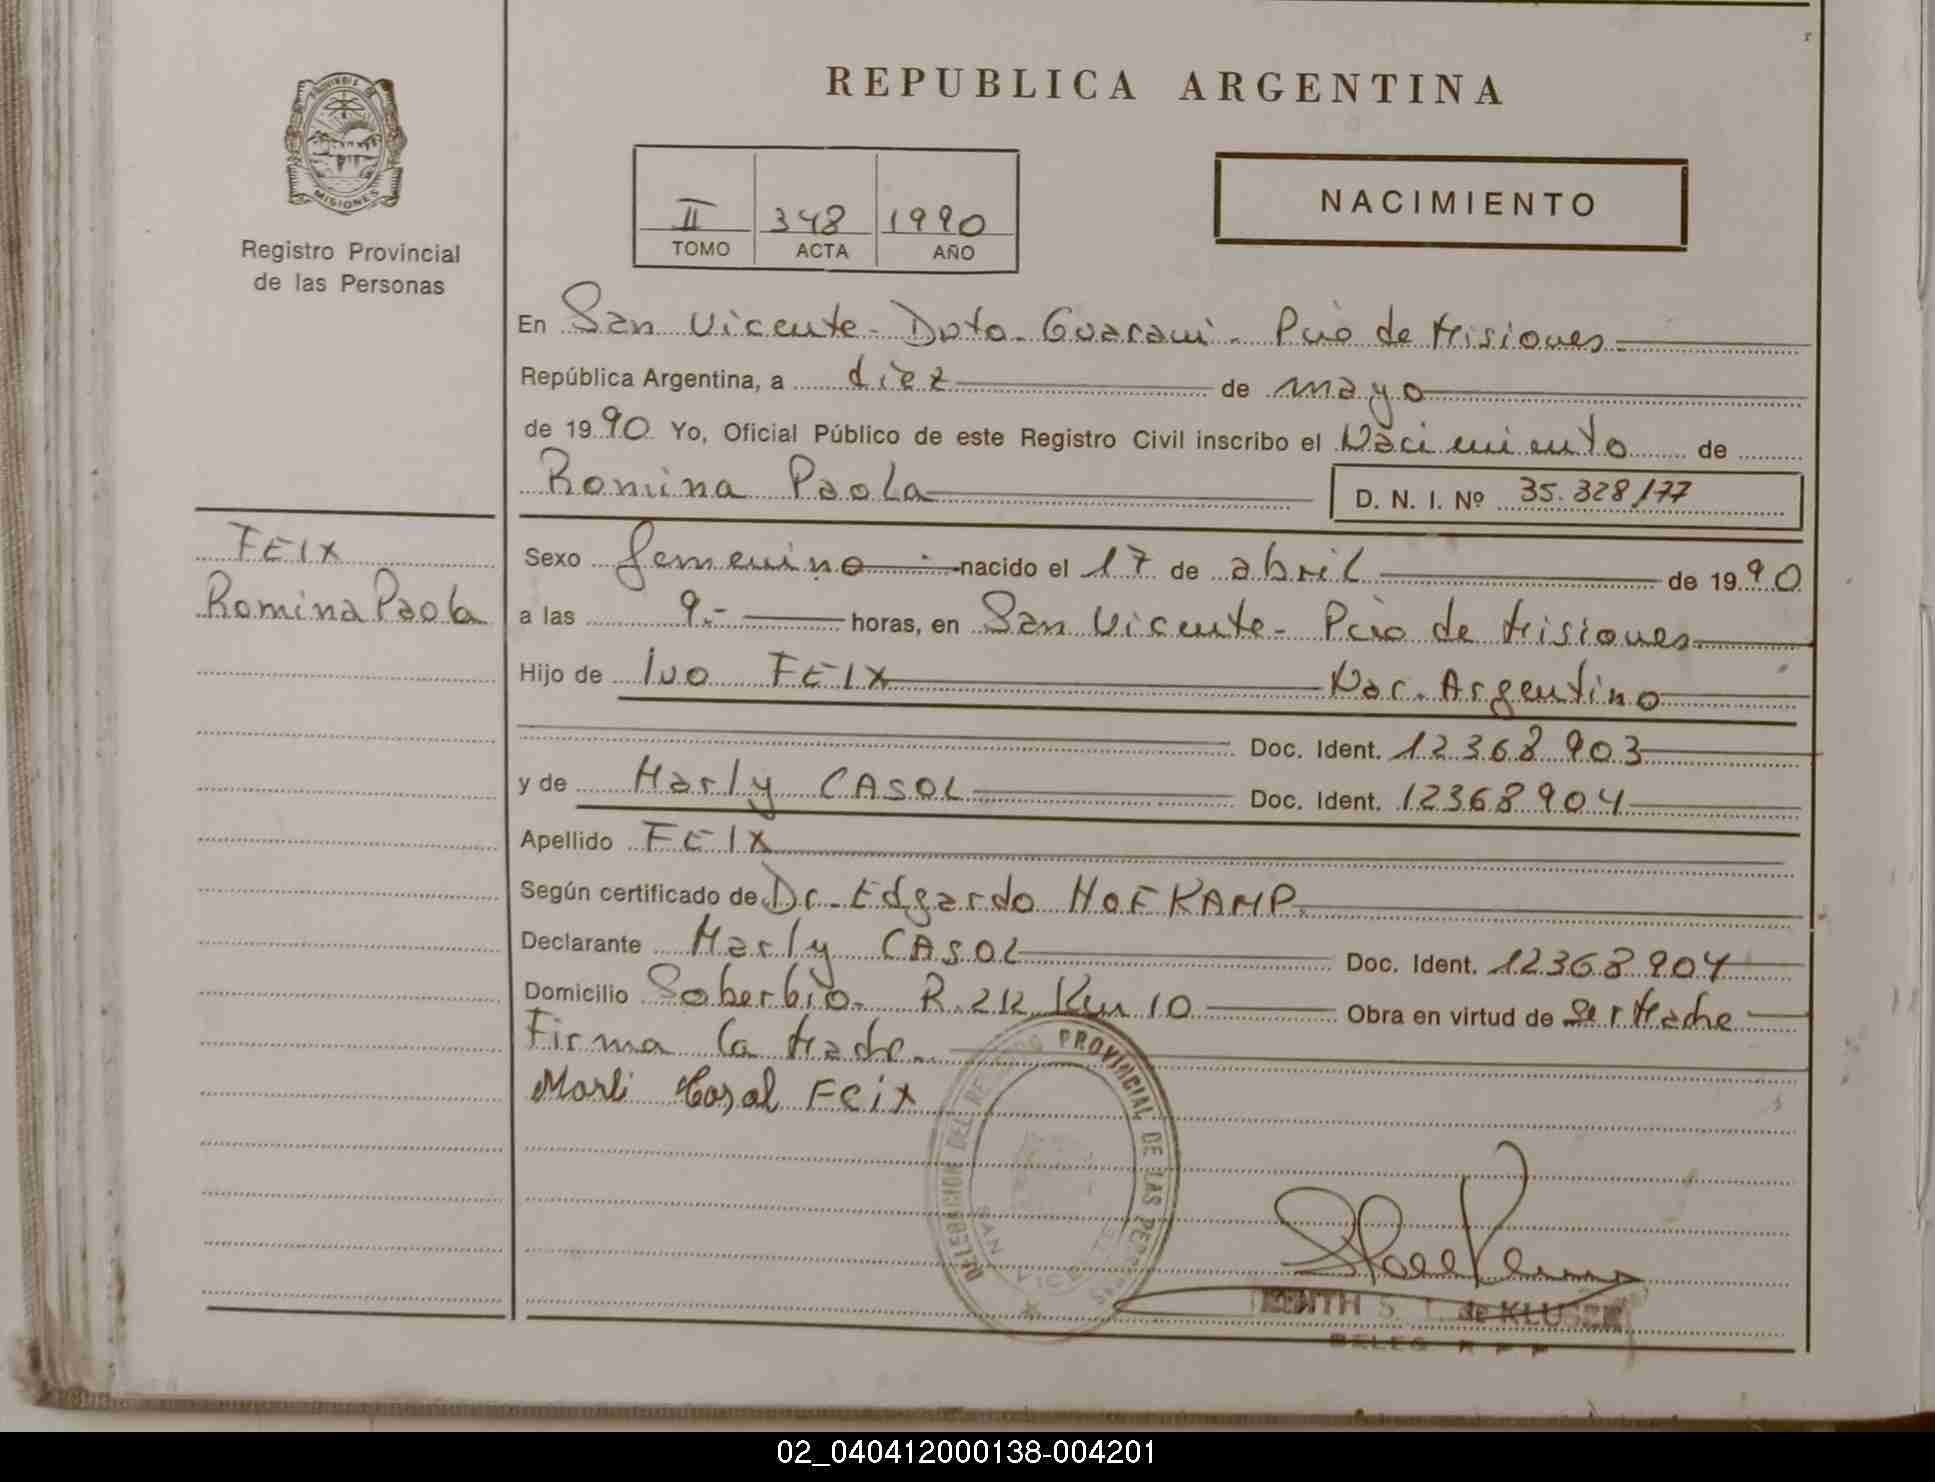 PROVINCIA DE
MISIONES
Registro Provincial
de las Personas
REPUBLICA ARGENTINA
II 348 1990
TOMO ACTA AÑO
NACIMIENTO
En San Vicente - Dpto. Guarani - Pcio de Misiones
República Argentina, a diez de mayo
de 1990 Yo, Oficial Público de este Registro Civil inscribo el Nacimiento de
Romina Paola D. N. I. Nº 35.328177
FEIX
Romina Paola
Sexo femenino nacido el 17 de abril de 1990
a las 9.- horas, en San Vicente - Pcio de Misiones
Hijo de Ivo FEIX Nac. Argentino
Doc. Ident. 12368903
y de Marly CASOL Doc. Ident. 12368904
Apellido FEIX
Según certificado de Dr. Edgardo HOFKAMP.
Declarante Marly CASOL Doc. Ident. 12368904
Domicilio Soberbio. R. 212 Km 10 Obra en virtud de ser Madre
Firma la Madre.
Marli Casal Feix
DELEGACION DEL REGISTRO PROVINCIAL DE LAS PERSONAS
SAN VICENTE
de KLUSER
DELEG R P P
02_040412000138-004201